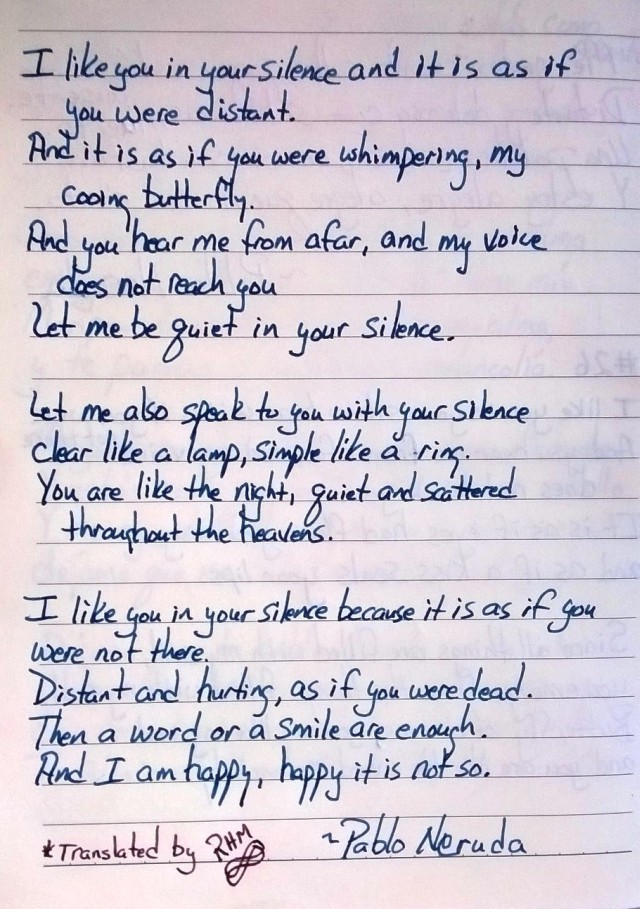 I like you in your silence and it is as if
you were distant.
And it is as if you were whimpering, my
cooing butterfly.
And you hear me from afar, and my voice
does not reach you
Let me be quiet in your silence.
Let me also speak to you with your silence
Clear like a lamp, simple like a ring.
You are like the night, quiet and scattered
throughout the heavens.
I like you in your silence because it is as if you
were not there.
Distant and hurting, as if you were dead.
Then a word or a smile are enough.
And I am happy, happy it is not so.
*Translated by RHM ~Pablo Neruda
#26